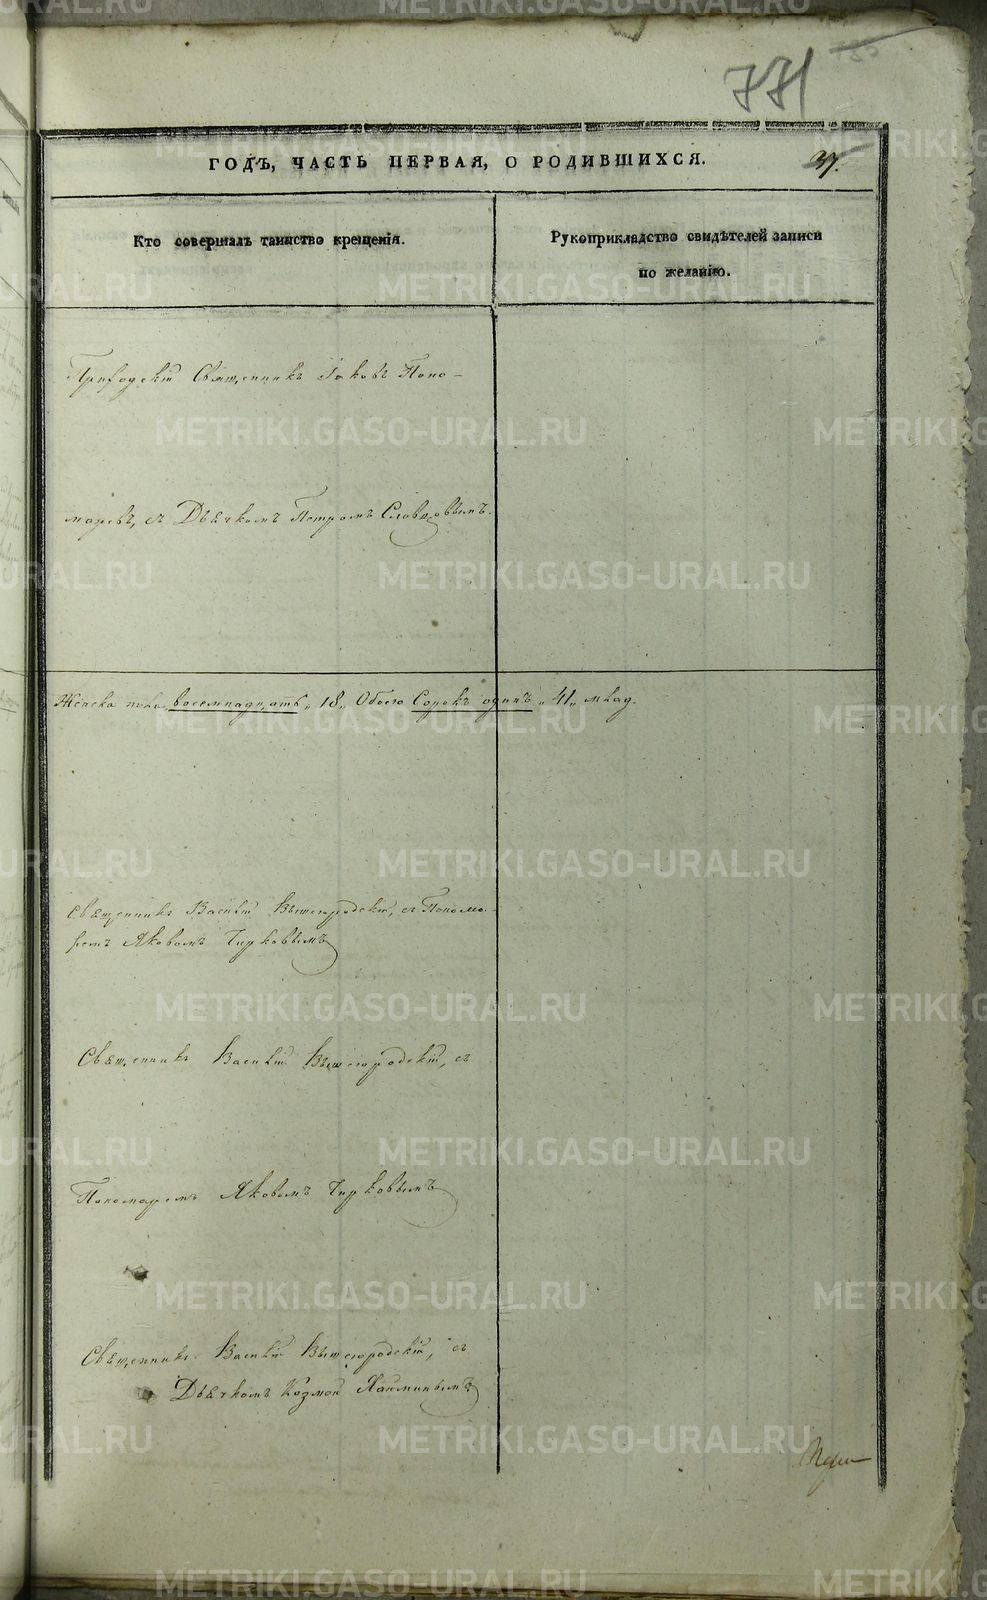 771
ГОДЪ, ЧАСТЬ ПЕРВАЯ, О РОДИВШИХСЯ.
37.
Кто совершалъ таинство крещенія.
Рукоприкладство свидѣтелей записи
по желанію.
Приходскій Священникъ Іаковъ Поно-
маревъ, съ Дьячкомъ Петромъ Словцовымъ.
Женска пола восемнадцать „18„ Обоего Сорокъ одинъ „41„ млад.
Священникъ Василій Вышегородскій, съ Пономо-
ремъ Яковомъ Чирковымъ
Священникъ Василій Вышегородскій, съ
Пономаремъ Яковомъ Чирковымъ
Священникъ Василій Вышегородскій, съ
Дьячкомъ Козмой
METRIKI.GASO-URAL.RU